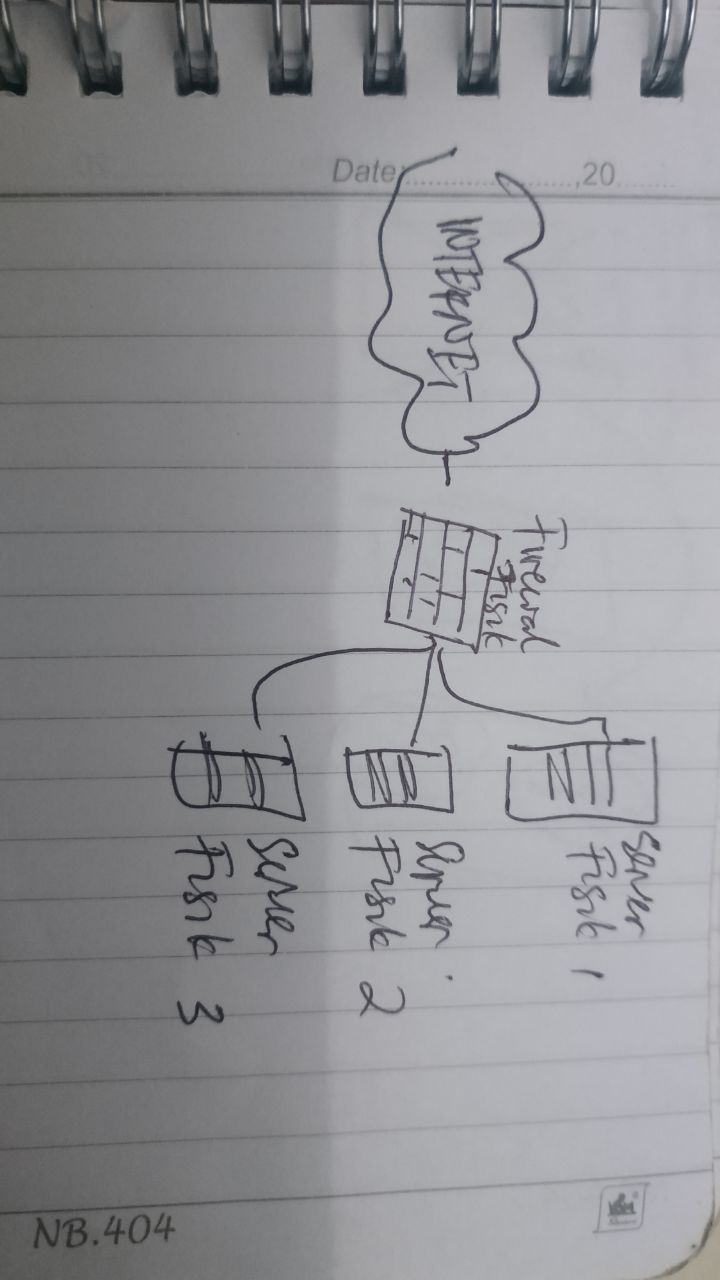 Date: ....................,20........
INTERNET
Firewal
Fisik
Server
Fisik 1
Server
Fisik 2
Server
Fisik 3
NB.404